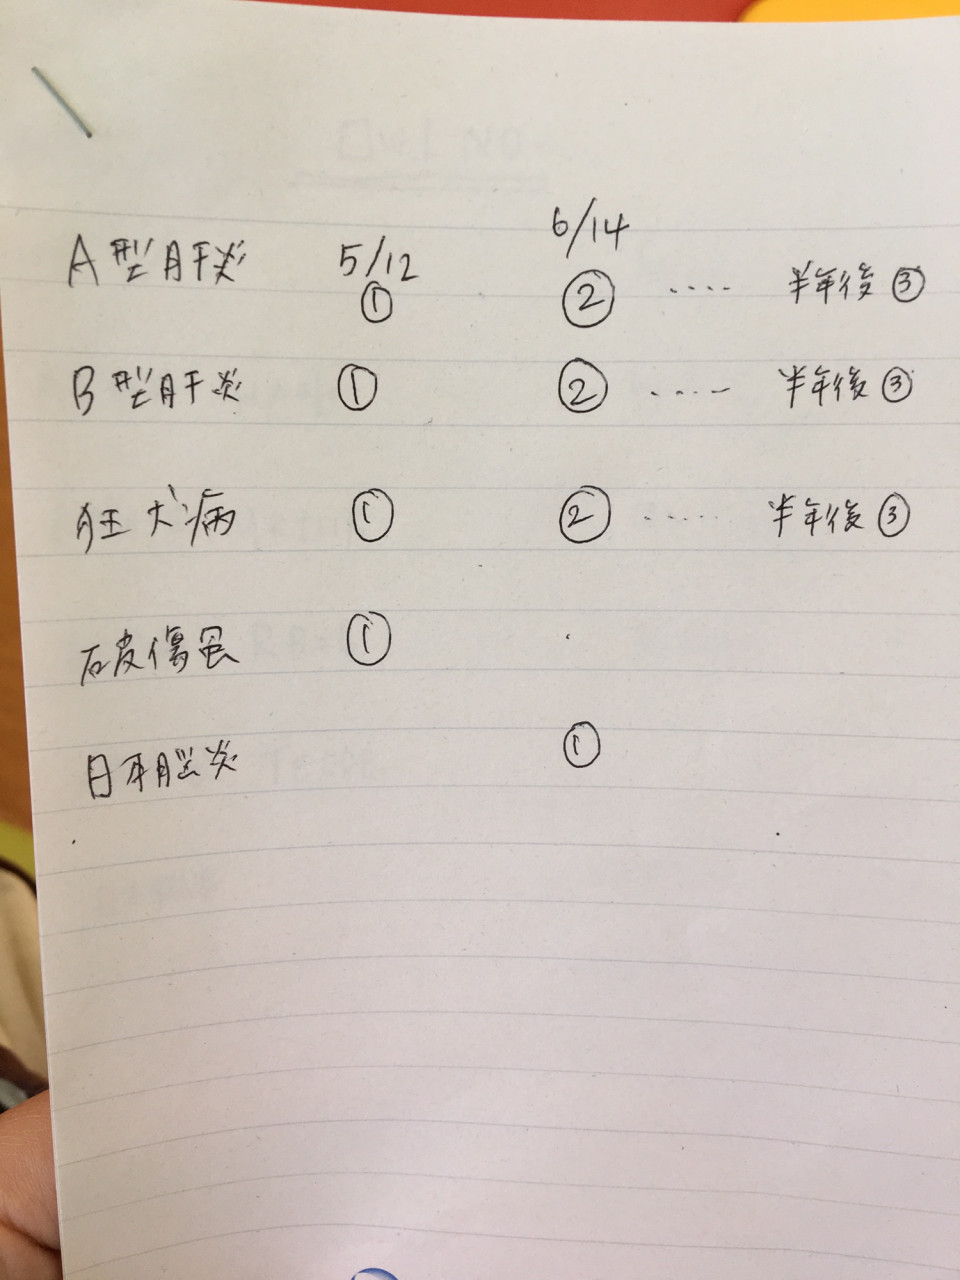 6/14
A型肝炎 5/12 ① ② ‥‥ 半年後③
B型肝炎 ① ② ‥‥ 半年後③
狂犬病 ① ② ‥‥ 半年後③
破傷風 ①
日本脳炎 ①